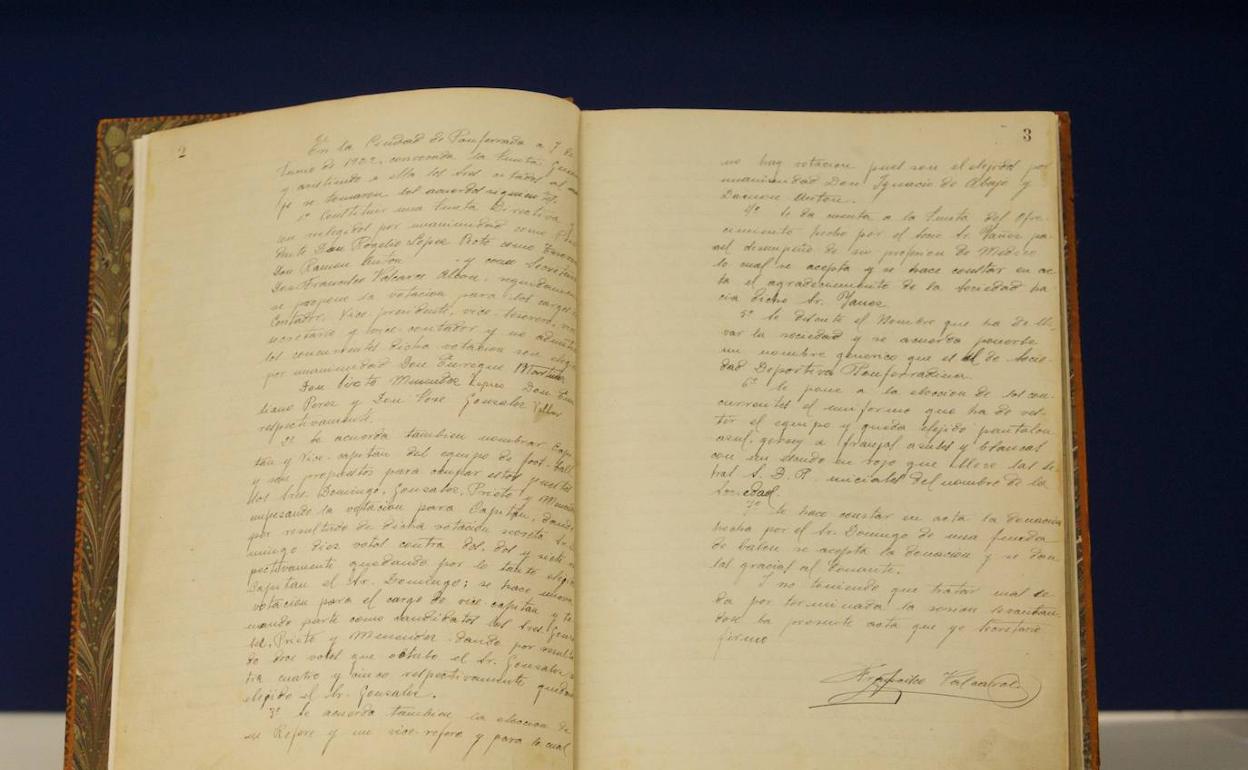 2
En la Ciudad de Ponferrada a 7 de
Junio de 1922, convocada la Junta
y asistiendo a ella los Sres. citados al
se tomaron los acuerdos siguientes.
1º Constituir una Junta Directiva
elegidos por unanimidad como
Don Rogelio López Boto como
Don Ramon Anton y como Secretario
Don Valcarce Albon, seguidamente
se propone la votacion para los cargos
Contador, Vice-presidente, vice-tesorero, vice
secretario y vice-contador y no
los concurrentes dicha votacion son
por unanimidad Don Enrique Martinez
Don Sixto Menendez Don
Perez y Don Jose Gonzalez
respectivamente.
2º Se acuerda tambien nombrar
y Vice-capitán del equipo de foot-ball
y son propuestos para ocupar estos puestos
los Sres. Domingo, Gonzalez, Prieto y
empesando la votación para Capitan, dando
por resultado de dicha votación secreta
diez votos contra dos, dos y siete
quedando por lo tanto
Capitan el Sr. Domingo; se hace nueva
votacion para el cargo de vice-capitán y
parte como candidatos los Sres.
Prieto y Menendez dando por
doce votos que obtubo el Sr. Gonzalez
cuatro y cinco respectivamente quedando
elegido el Sr. Gonzalez.
3º Se acuerda tambien la eleccion de
un Refere y un vice-refere y para lo cual
3
no hay votacion pues son elejidos por
unanimidad Don Ignacio de Abajo y
Anton.
4º Se da cuenta a la Junta del ofre-
cimiento hecho por el socio Sr. Yañez pa-
el desempeño de su profesion de Medico
lo cual se acepta y se hace constar en ac-
ta el agradecimiento de la Sociedad ha-
cia dicho Sr. Yañez.
5º Se discute el Nombre que ha de lle-
var la sociedad y se acuerda ponerle
un nombre generico que es el de Socie-
dad Deportiva Ponferradina.
6º Se pone a la eleccion de los con-
currentes el uniforme que ha de ves-
tir el equipo y queda elejido pantalon
azul, gersey a franjas azules y blancas
con un escudo en rojo que lleve las le-
tras S. D. P. iniciales del nombre de la
Sociedad.
7º Se hace constar en acta la donación
hecha por el Sr. Domingo de una
de balon se acepta la donacion y se dan
las gracias al donante.
Y no teniendo que tratar mas se
da por terminada la sesion levantan-
dose la presente acta que yo Secretario
firmo